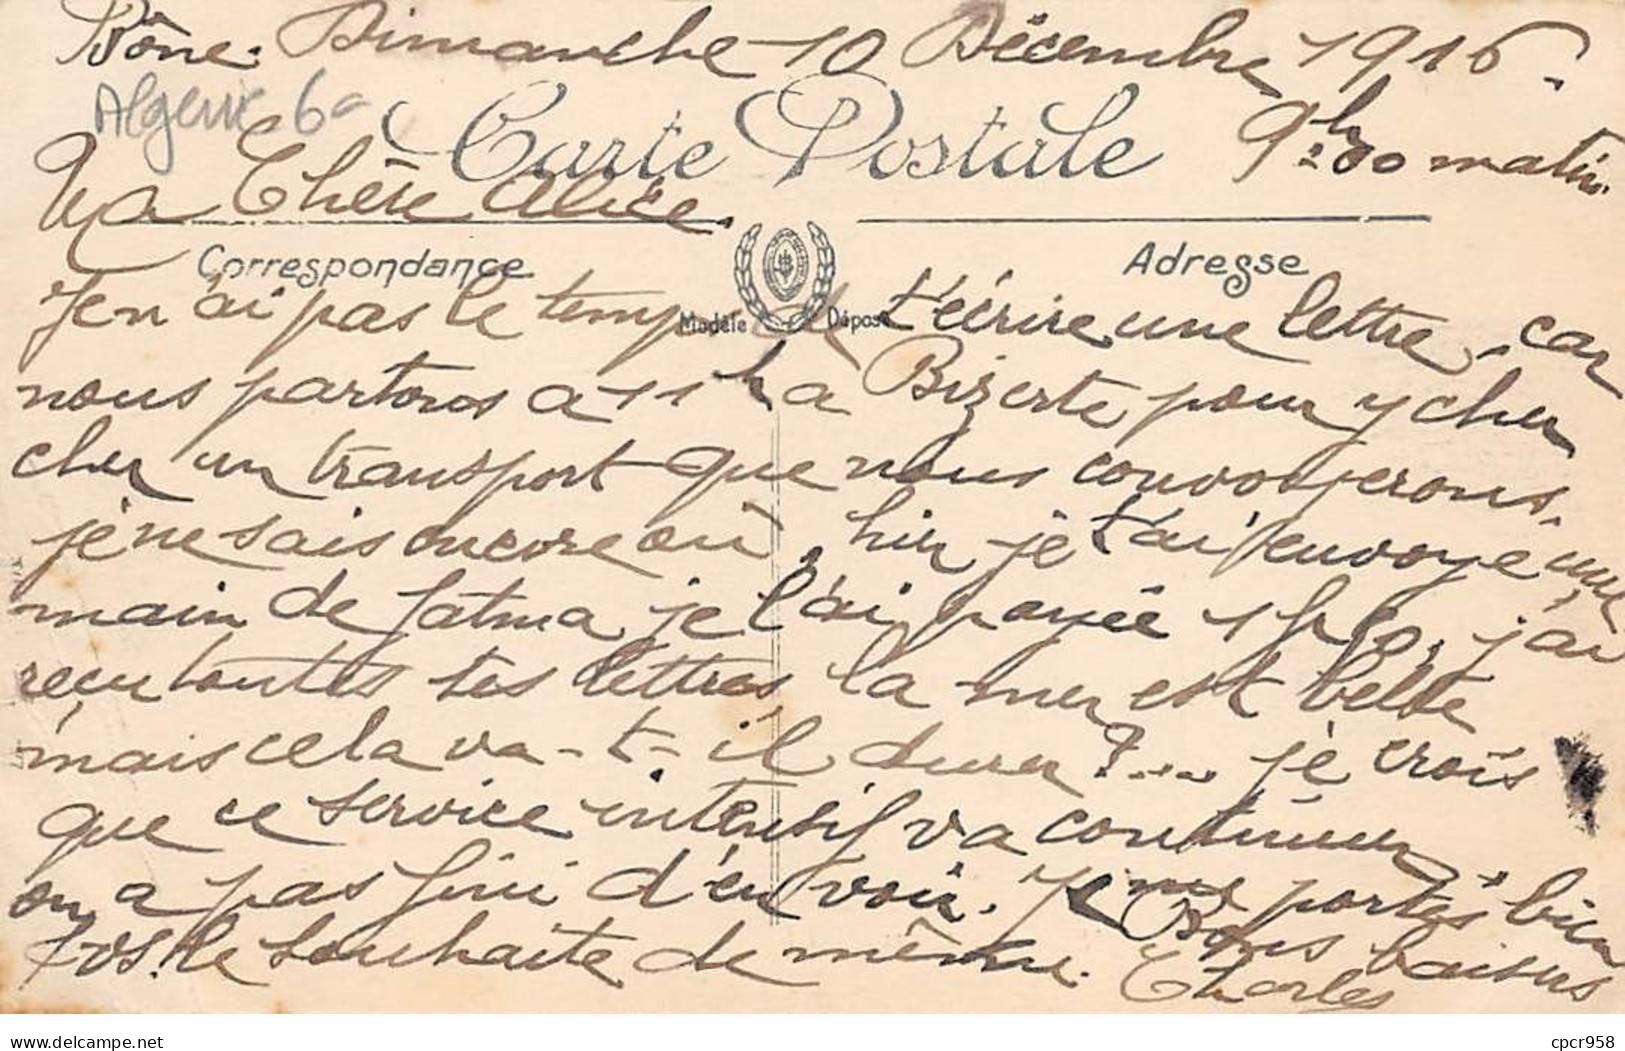 Bône. Dimanche 10 Décembre 1916.
Algerie 6
Carte Postale
9h00 matin.
Ma Chère Alice.
Correspondance
Adresse
Modèle Déposé
Je n'ai pas le temps de t'écrire une lettre, car
nous partons a 11h a Bizerte pour y cher
cher un transport que nous convoyerons.
je ne sais encore où, hier je t'ai envoye une
main de fatma je l'ai payée 1f10. j'ai
reçu toutes tes lettres la mer est belle
mais cela va-t-il durer?... je crois
que ce service intensif va continuer,
on a pas fini d'en voir. Je me portes bien
tjrs. le souhaite de même. Bons baisers
Charles
www.delcampe.net
cpcr958